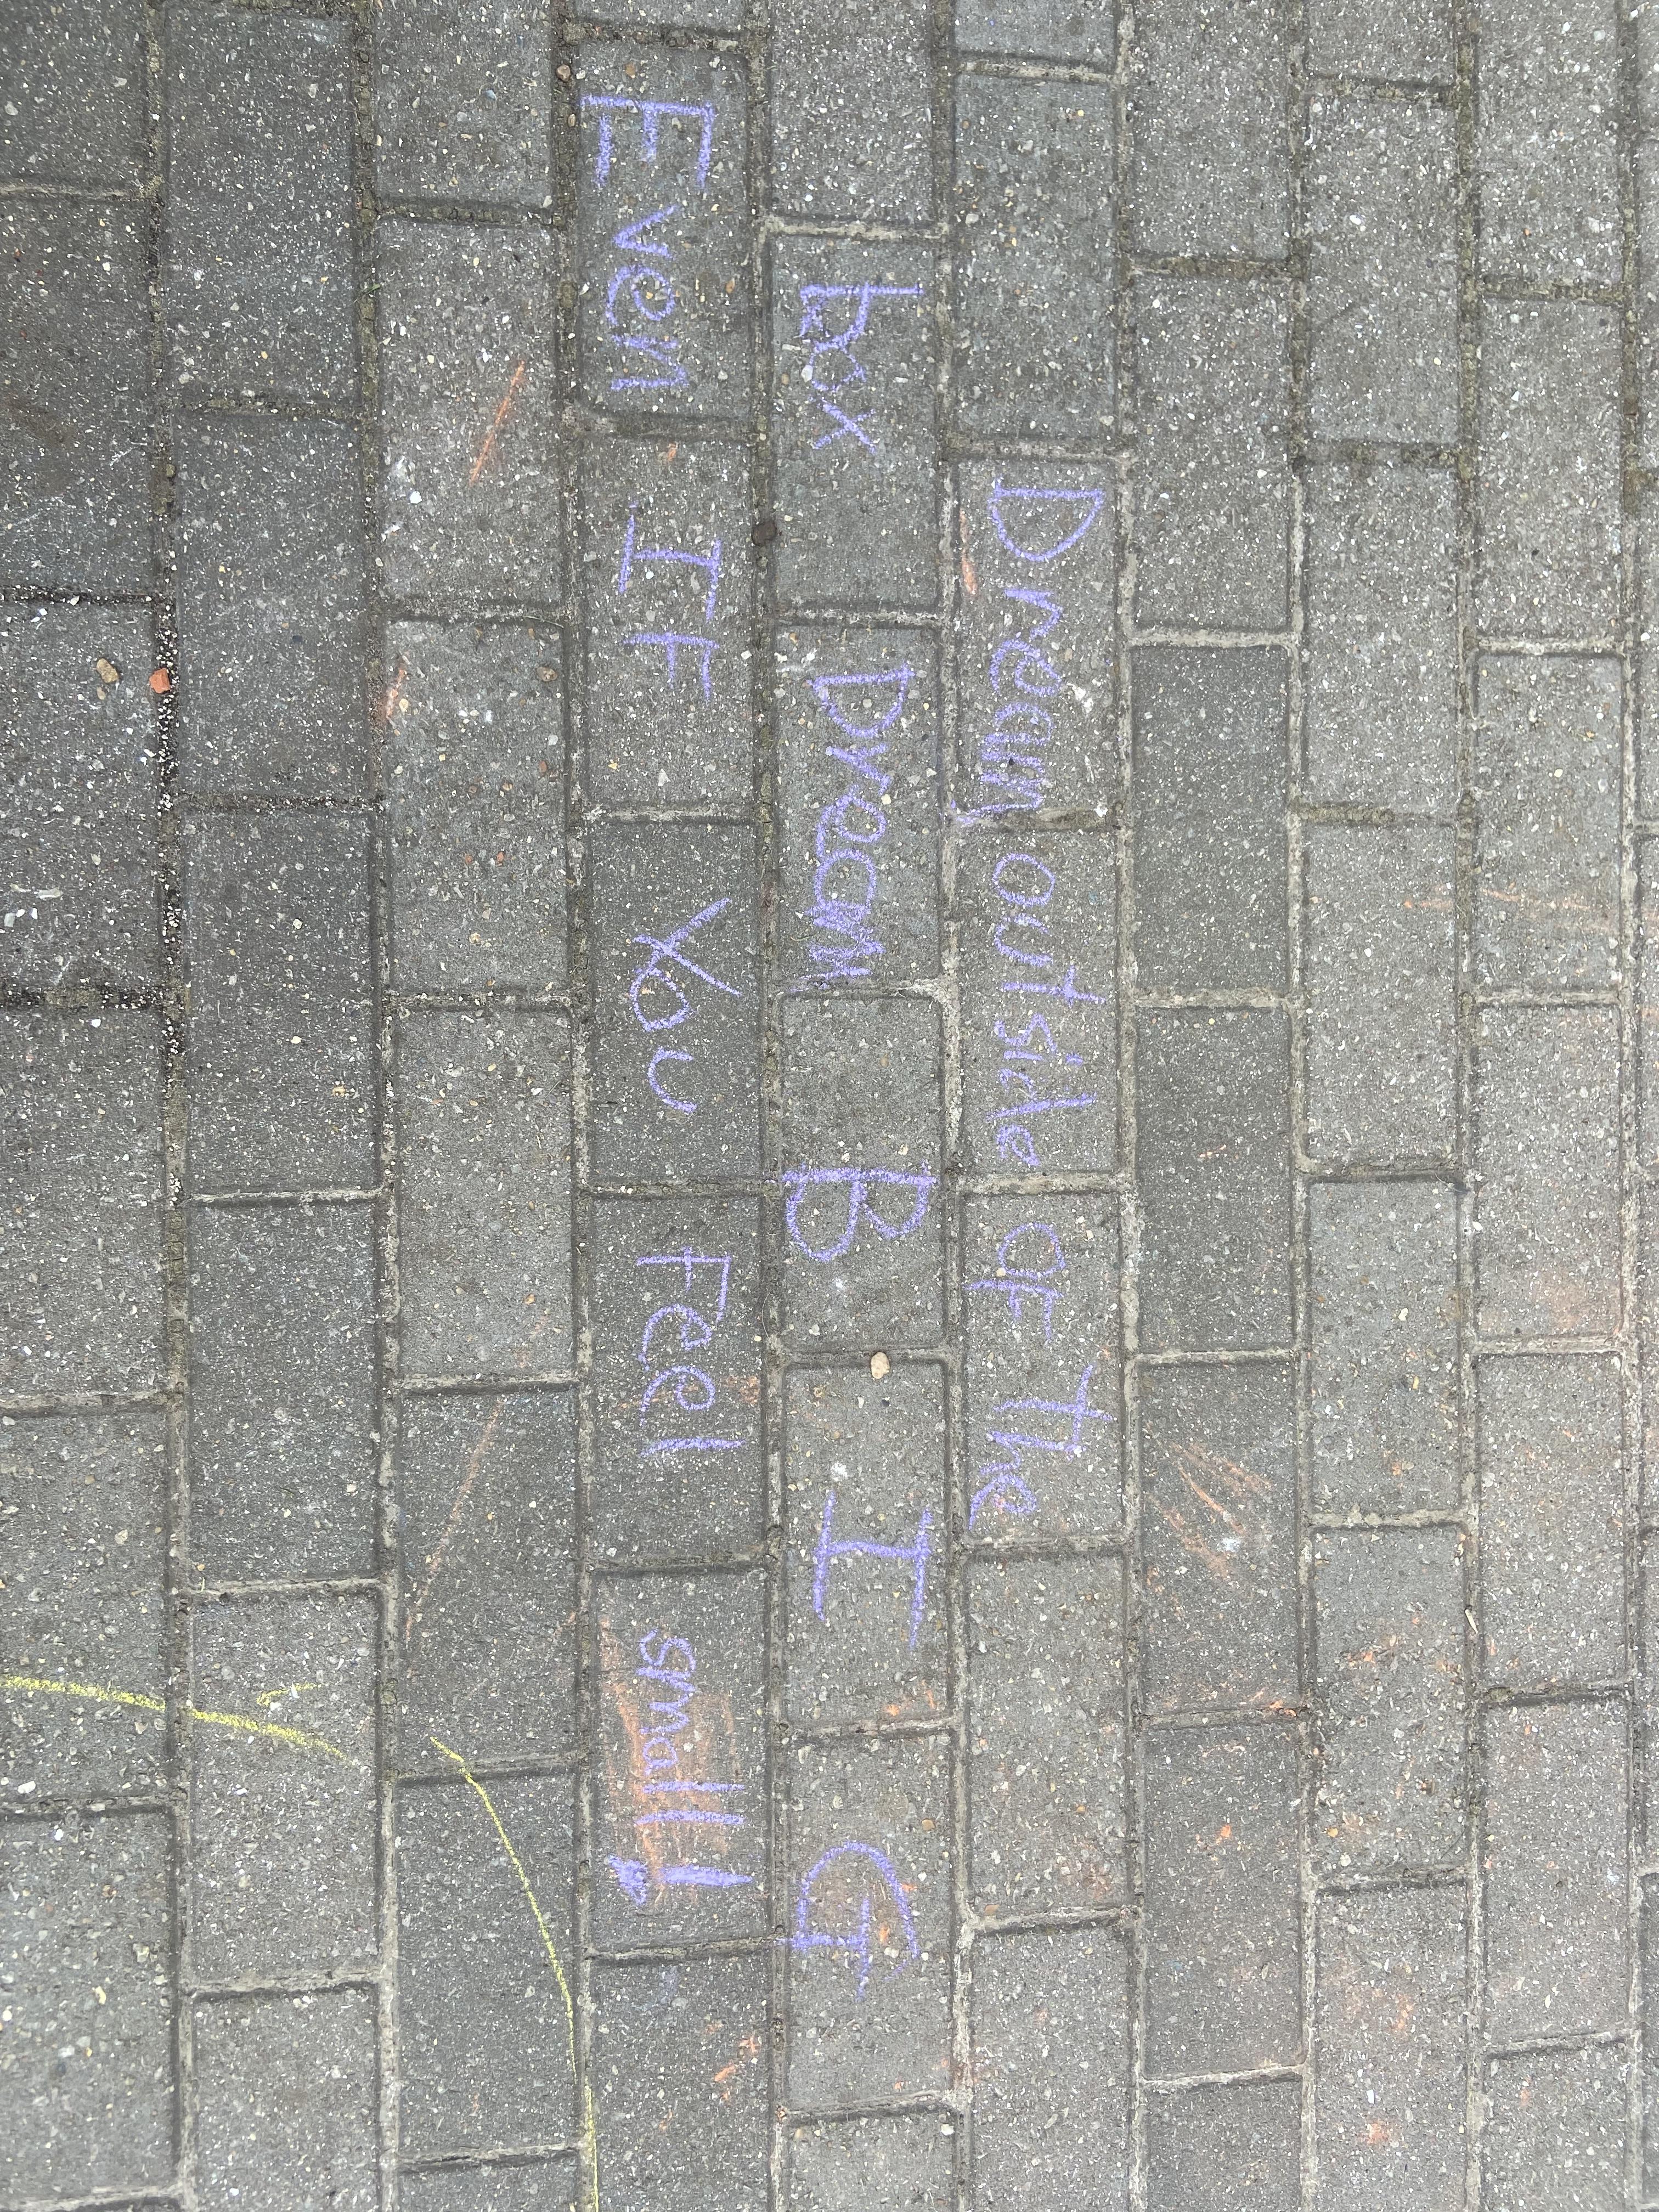 Dream outside OF The
box Dream B I G
Even IF You Feel small!